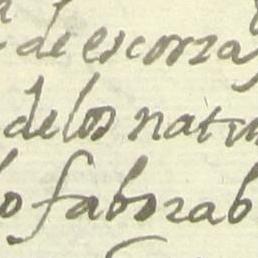 de escorza
de los natu
lo faborab